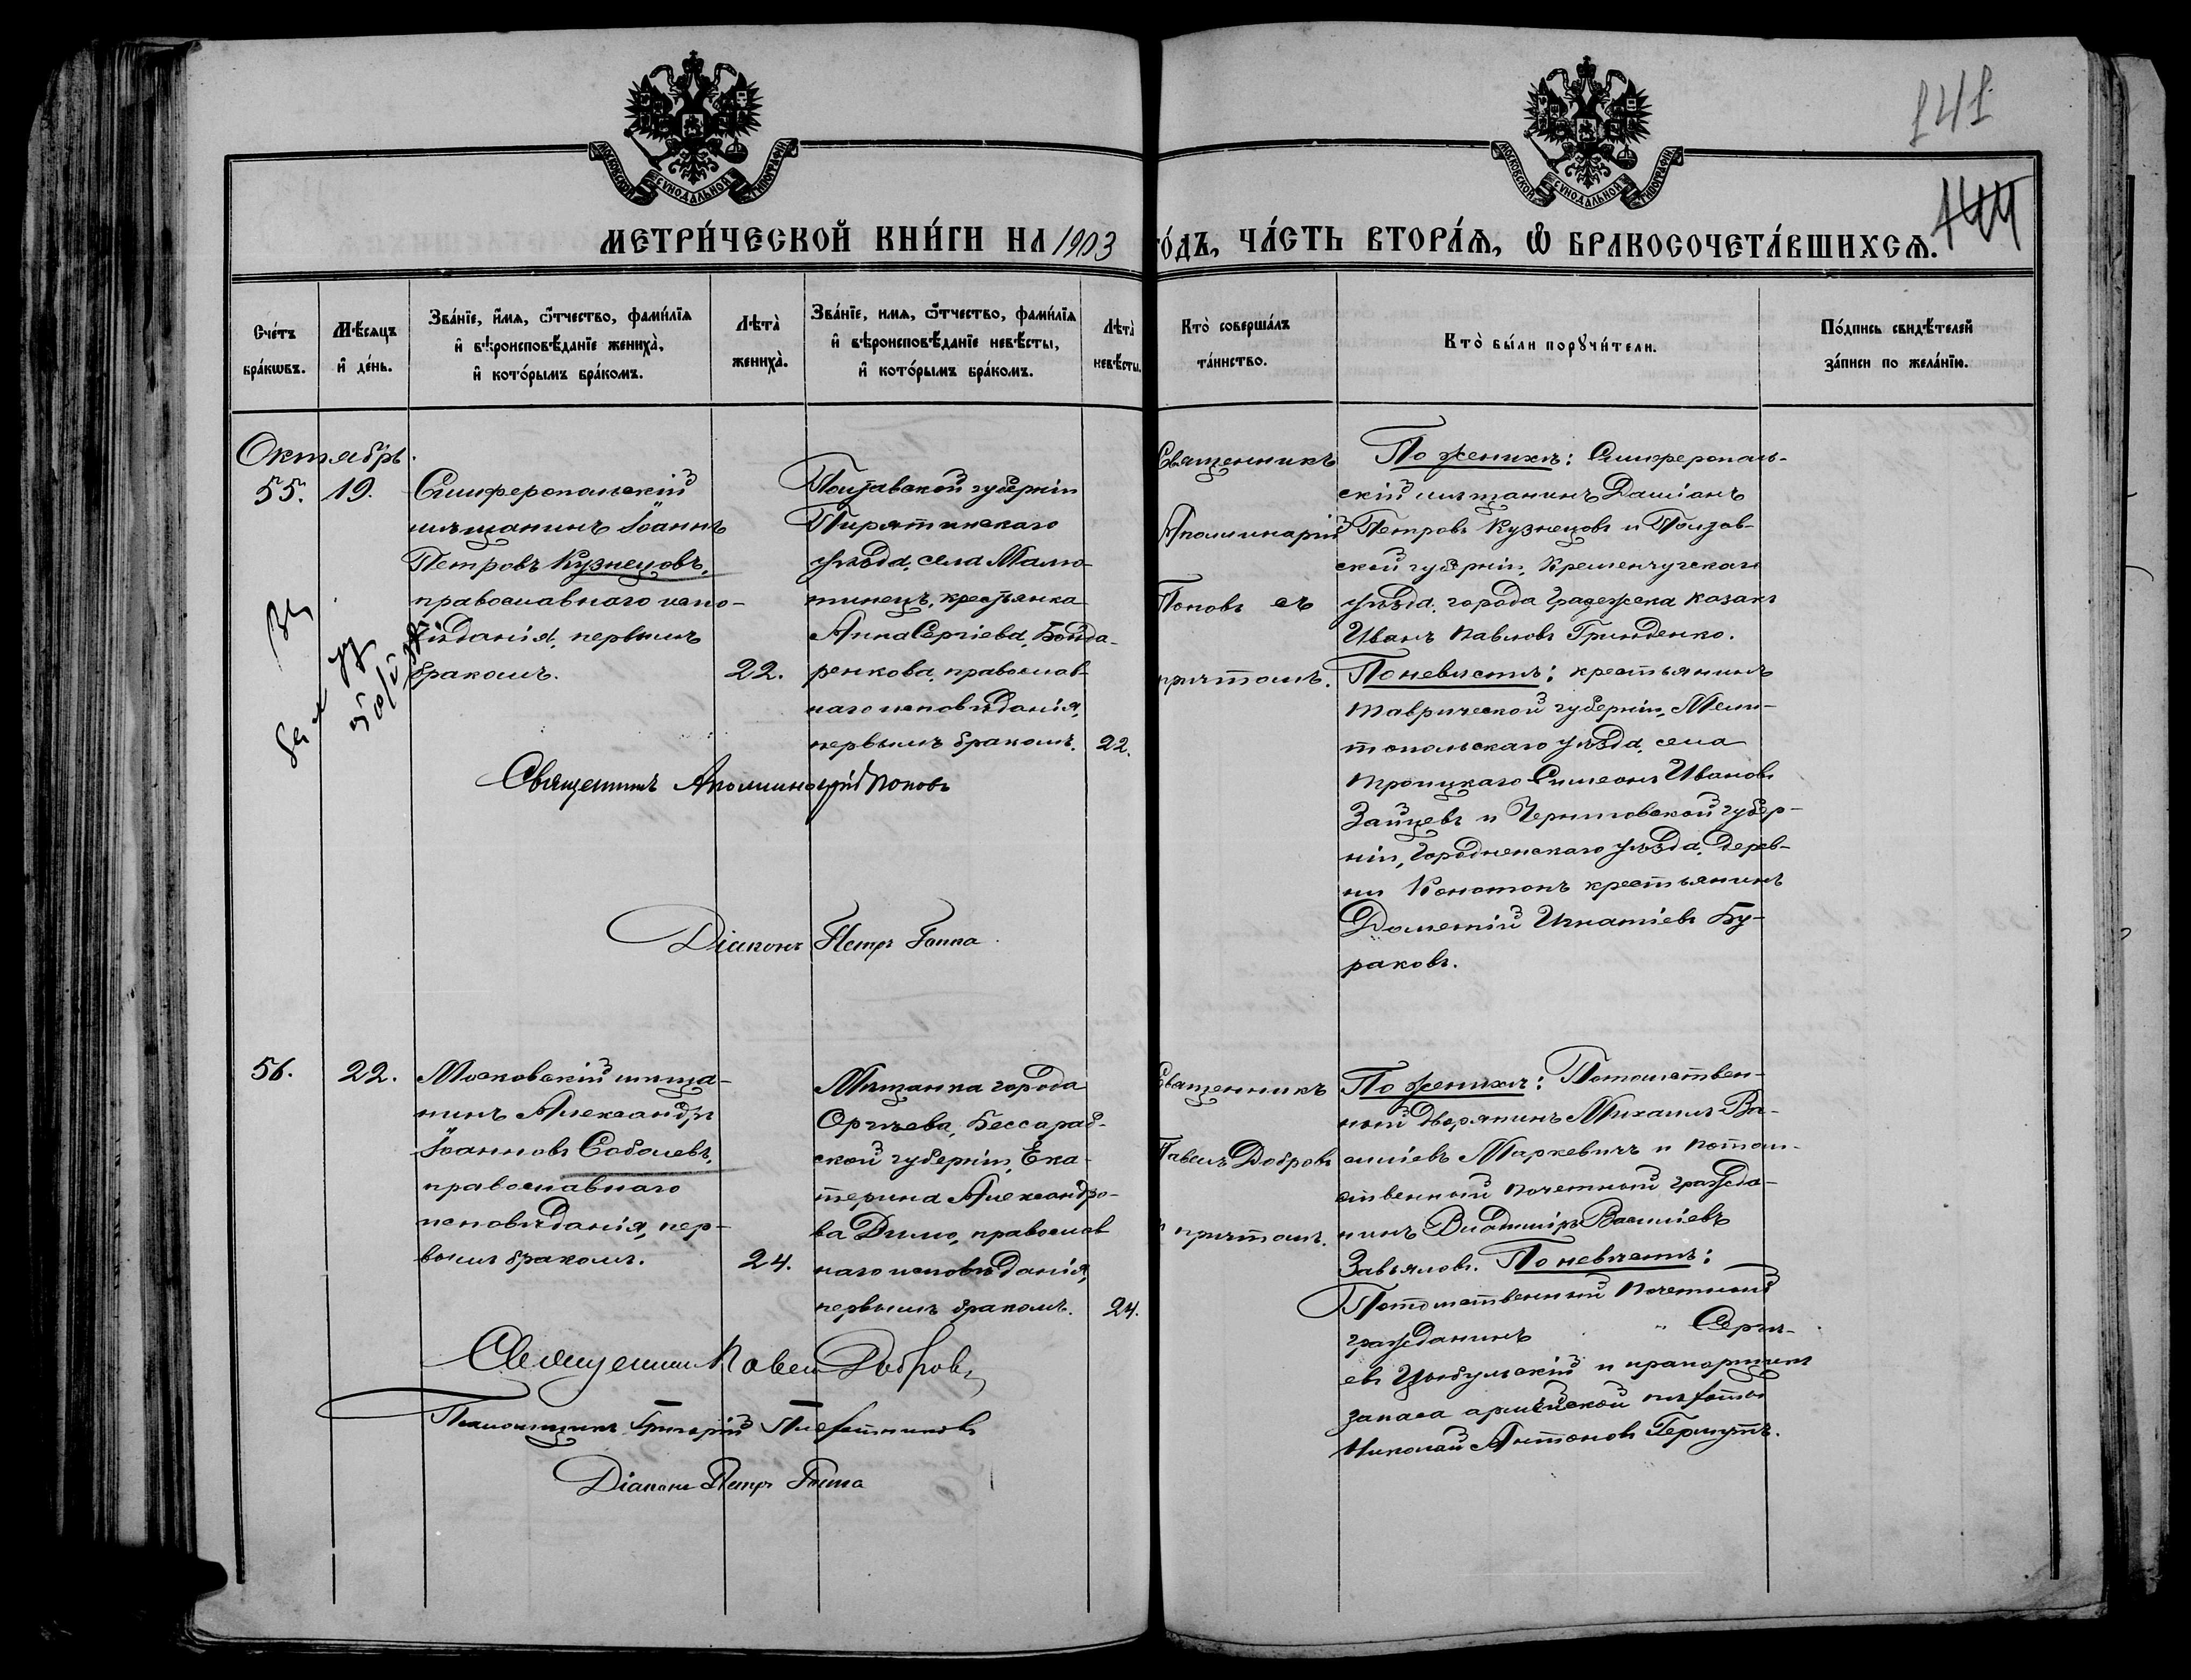 141
144
МОСКОВСКОЙ СѴНОДАЛЬНОЙ ТИПОГРАФІИ
МОСКОВСКОЙ СѴНОДАЛЬНОЙ ТИПОГРАФІИ
МЕТРИ́ЧЕСКОЙ КНИ́ГИ НА 1903
ГО́ДЪ, ЧА́СТЬ ВТОРА́Я, Ѡ БРАКОСОЧЕТА́ВШИХСЯ.
Сче́тъ
бра́кѡвъ.
Мѣ́сяцъ
и҆ де́нь.
Зва́нїе, и҆́мя, ѻ҆́тчество, фами́лїя
и҆ вѣроисповѣ́данїе жениха̀,
и҆ кото́рымъ бра́комъ.
Лѣта̀
жениха̀.
Зва́нїе, имя, ѻ҆́тчество, фами́лїя
и҆ вѣроисповѣ́данїе невѣ́сты,
и҆ кото́рымъ бра́комъ.
Лѣта̀
невѣ́сты.
Кто̀ соверша́лъ
та́инство.
Кто̀ бы́ли порꙋчи́тели.
По́дпись свидѣ́телей
за́писи по жела́нїю.
Октябрь.
55.
19.
Симферопольскій
мѣщанинъ Іоаннъ
Петровъ Кузнецовъ,
православнаго испо-
вѣданія, первымъ
бракомъ.
22.
Полтавской губерніи
Пирятинскаго
уѣзда, села Малю-
тинецъ, крестьянка
Анна Сергіева Бонда-
ренкова, православ-
наго исповѣданія,
первымъ бракомъ.
22.
Священникъ
Аполлинарій
Поповъ съ
причтомъ.
По женихѣ: Симферополь-
скій мѣщанинъ Даміанъ
Петровъ Кузнецовъ и Полтав-
ской губерніи, Кременчугскаго
уѣзда, города Градежска козакъ
Иванъ Павловъ Гринденко.
По невѣстѣ: крестьянинъ
Таврической губерніи, Мели-
топольскаго уѣзда, села
Троицкаго Симеонъ Ивановъ
Зайцевъ и Черниговской губер-
ніи, Городненскаго уѣзда, дерев-
ни Конотопъ крестьянинъ
Дометій Игнатіевъ Бу-
раковъ.
Священникъ Аполлинарій Поповъ
Діаконъ Петръ Гопка
56.
22.
Московскій мѣща-
нинъ Александръ
Іоанновъ Соболевъ,
православнаго
исповѣданія, пер-
вымъ бракомъ.
24.
Мѣщанка города
Оргѣева, Бессараб-
ской губерніи, Ека-
терина Александро-
ва Димо, православ
наго исповѣданія,
первымъ бракомъ.
24.
Священникъ
Павелъ Добровъ
съ причтомъ.
По женихѣ: Потомствен-
ный дворянинъ Михаилъ Ва-
силіевъ Маркевичъ и потом-
ственный почетный гражда-
нинъ Владиміръ Василіевъ
Завьяловъ. По невѣстѣ:
Потомственный почетный
гражданинъ " Сергі-
евъ Цыбульскій и прапорщикъ
запаса армейской пѣхоты
Николай Антоновъ
Священникъ Павелъ Добровъ
Псаломщикъ Григорій
Діаконъ Петръ Гопка